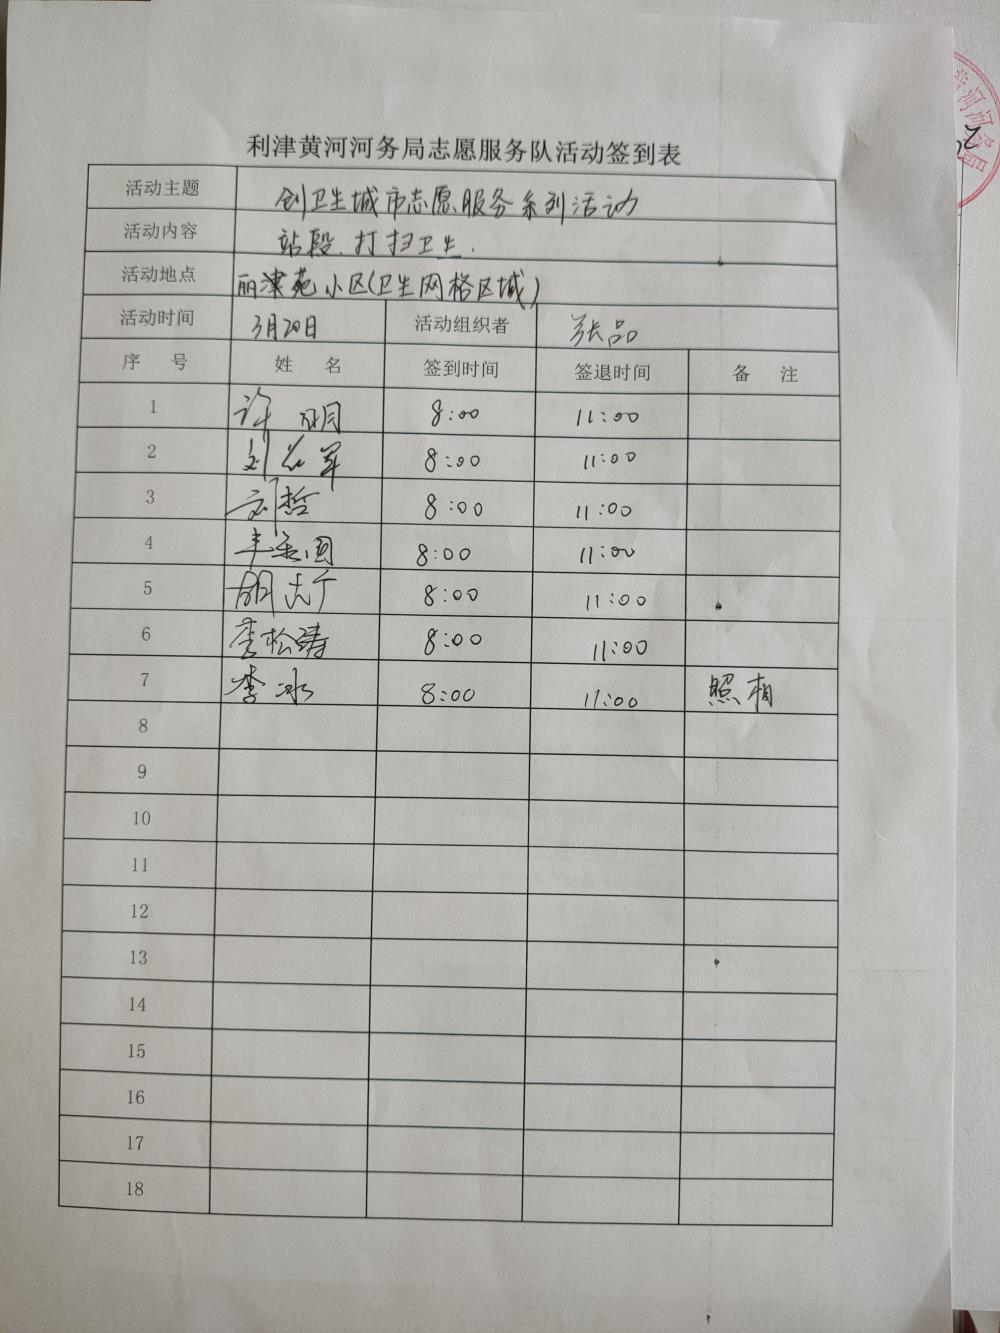 利津黄河河务局志愿服务队活动签到表
活动主题 创卫生城市志愿服务系列活动
活动内容 站段、打扫卫生.
活动地点 丽津苑小区(卫生网格区域)
活动时间 3月20日 活动组织者 张品
序 号 姓 名 签到时间 签退时间 备 注
1 许明 8:00 11:00
2 刘 军 8:00 11:00
3 刘哲 8:00 11:00
4 国 8:00 11:00
5 胡 8:00 11:00
6 李松涛 8:00 11:00
7 李冰 8:00 11:00 照相
8
9
10
11
12
13
14
15
16
17
18
黄河河务局